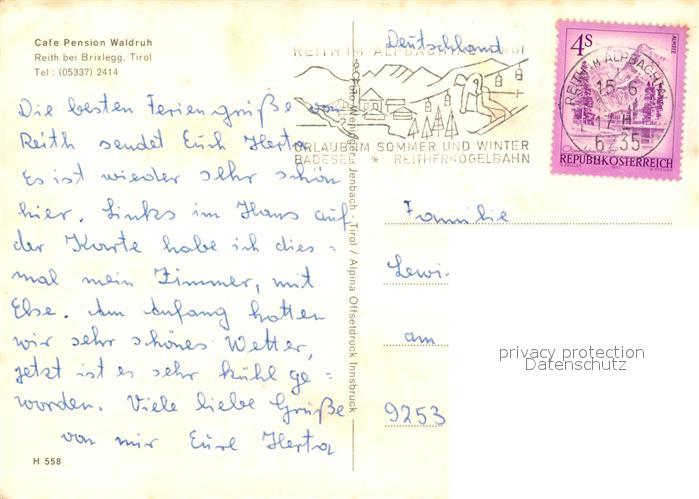 Cafe Pension Waldruh
Reith bei Brixlegg, Tirol
Tel : (05337) 2414
Die besten Feriengrüße von
Reith sendet Euch Herta
Es ist wieder sehr schön
hier. Links im Haus auf
der Karte habe ich dies=
mal mein Zimmer, mit
Else. Am Anfang hatten
wir sehr schönes Wetter,
jetzt ist es sehr kühl ge=
worden. Viele liebe Grüße
von mir Eure Herta
H 558
Jenbach - Tirol / Alpina Offsetdruck Innsbruck
Deutschland
REITH IM ALPBACHTAL TIROL
URLAUB IM SOMMER UND WINTER
BADESEE * REITHERKOGELBAHN
REITH IM ALPBACHTAL
15.-6.
6235
4S
ALMSEE
REPUBLIK ÖSTERREICH
Familie
Lewi
am
9253
privacy protection
Datenschutz